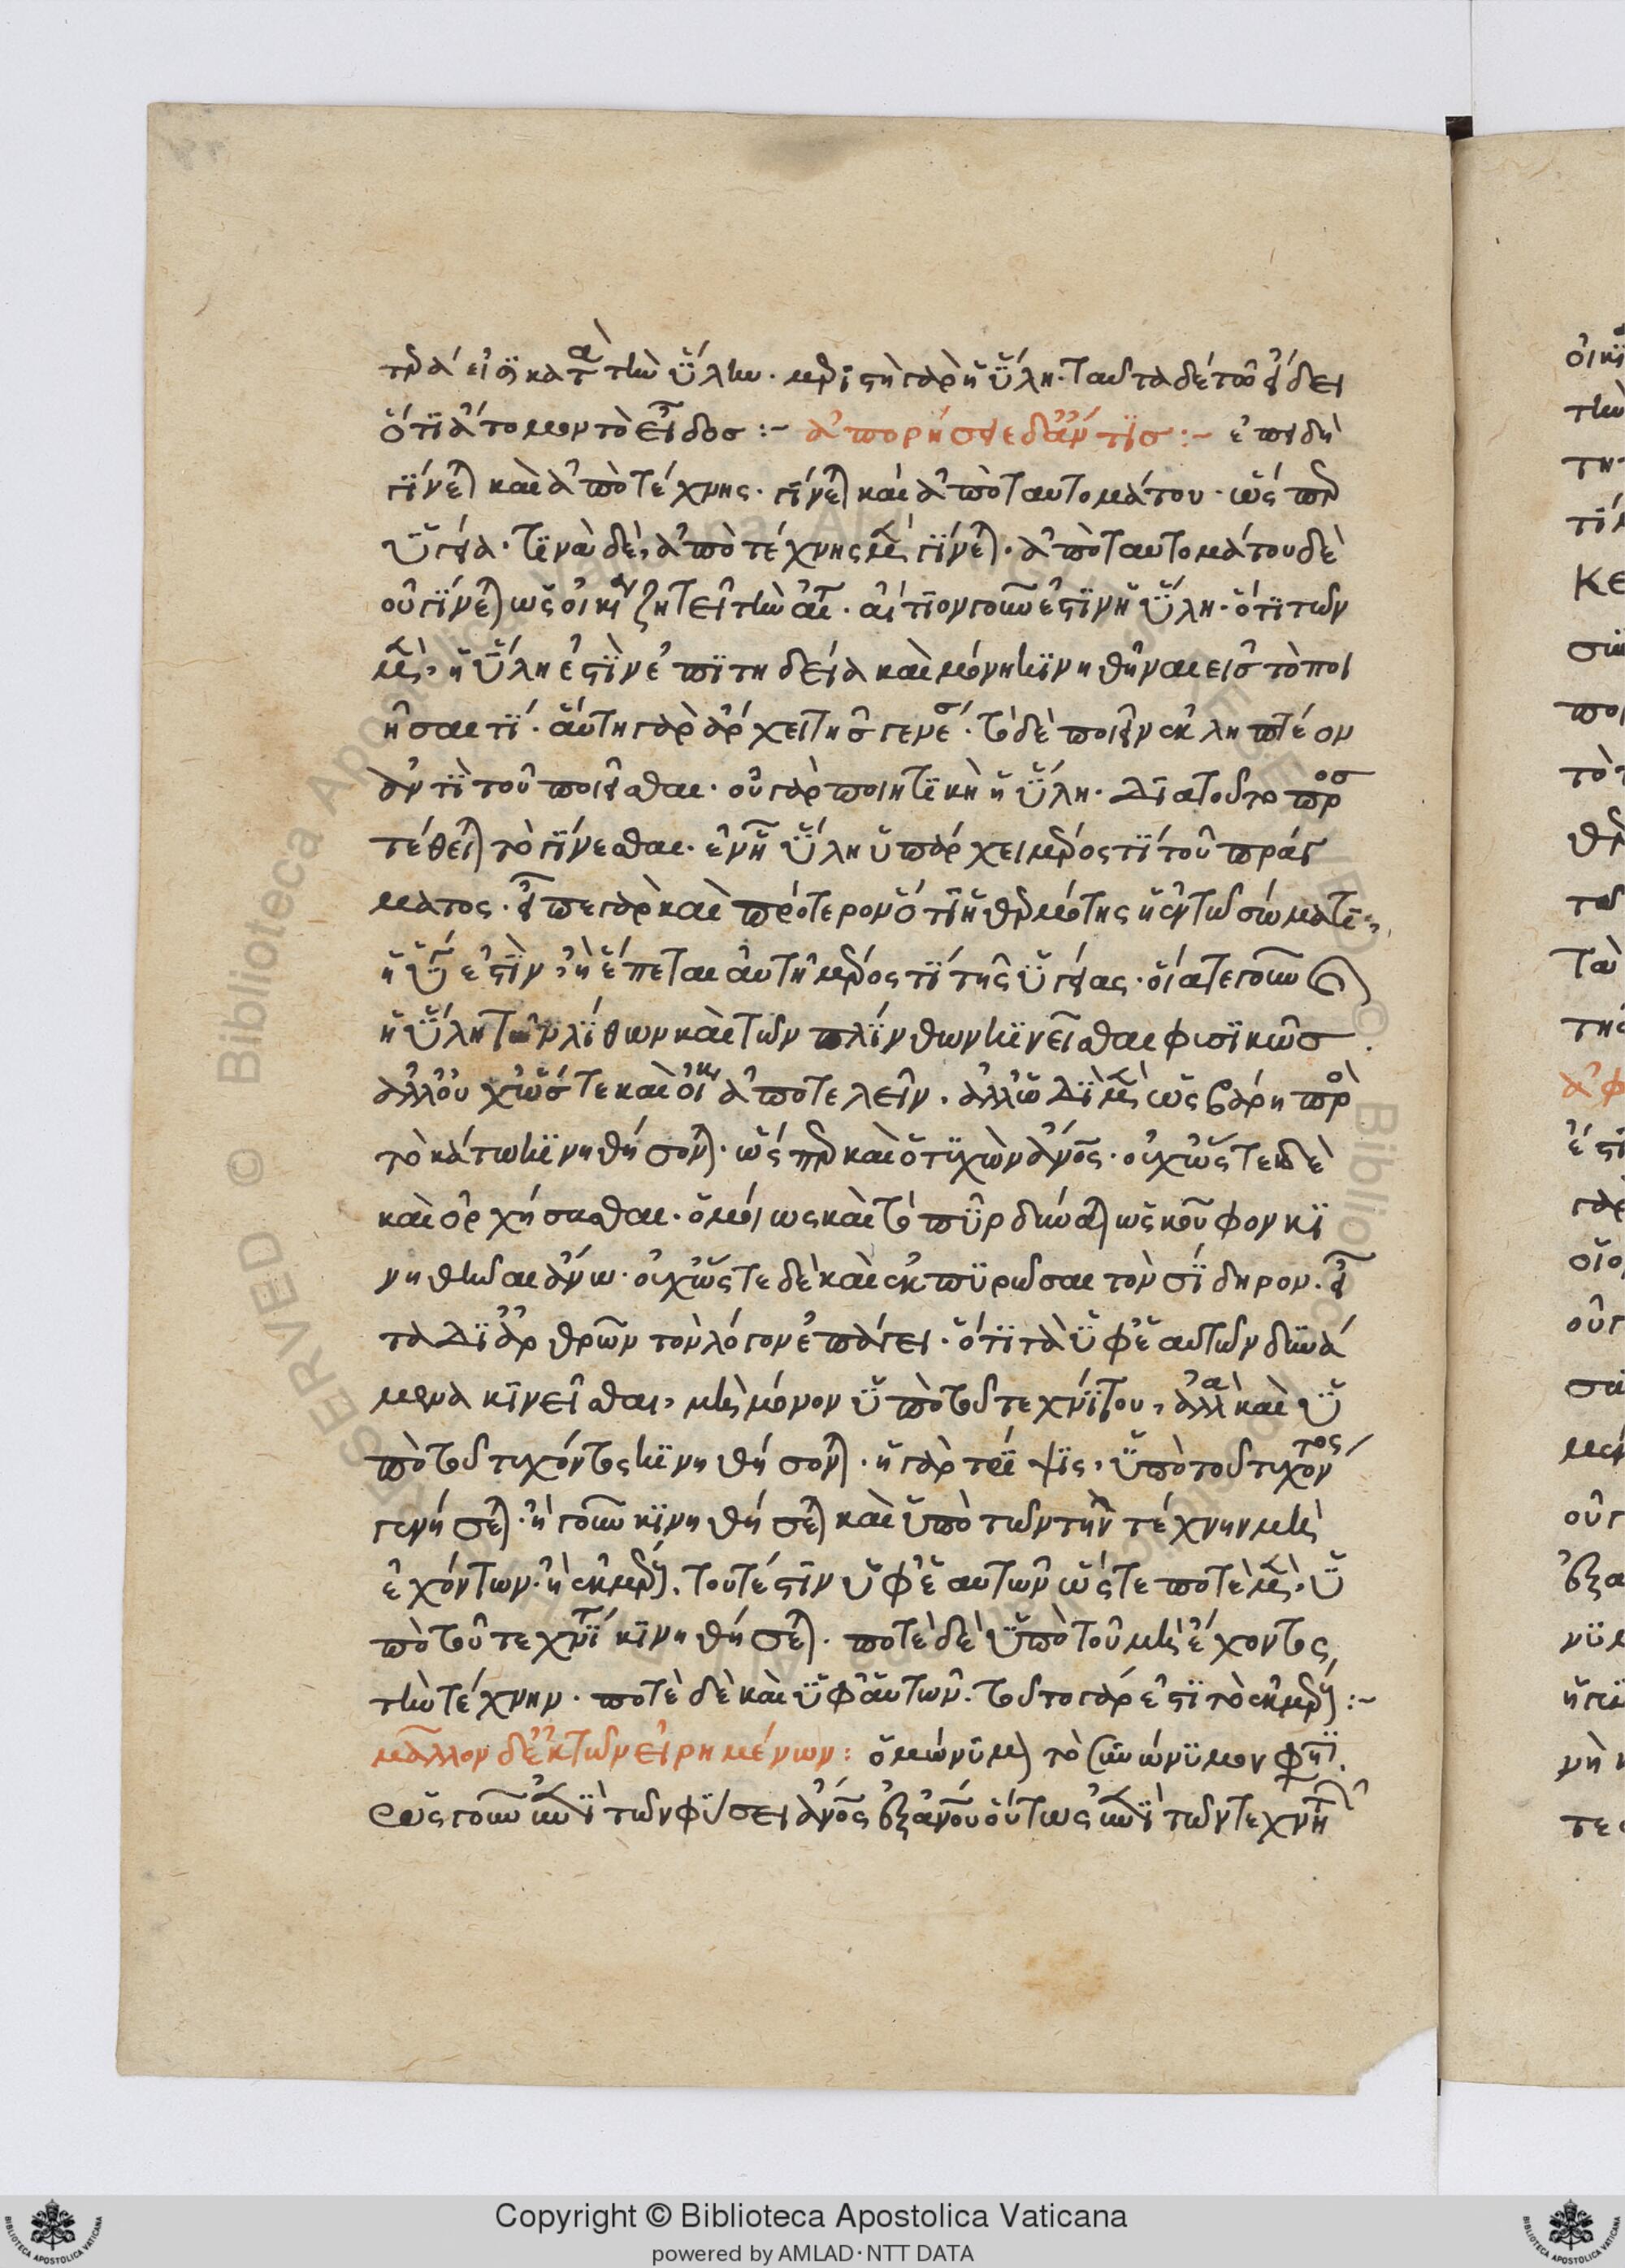 τερά εἰσι κατὰ τὴν ὕλην. μεριστὴ γὰρ ἡ ὕλη. ταυτα δέ τῶ εἴδει
ὅτι άτομον τὸ εἶδος :- ἀπορήσειε δ' ἄν τις :- ἐπειδὴ
γίνεται καὶ ἀπὸ τέχνης. γίνεται καὶ ἀπὸ ταυτομάτου. ὥσπερ
ὑγεία. τινὰ δὲ, ἀπὸ τέχνης μὲν γίνεται. ἀπὸ ταυτομάτου δὲ
οὐ γίνεται ὡς οἰκία ζητεῖ τὴν αἰτίαν. αἴτιον γοῦν ἐστιν ἡ ὕλη. ὅτι τῶν
μὲν, ἡ ὕλη ἐστὶν ἐπιτηδεία καὶ μόνη κινηθῆναι εἰς τὸ ποι
ῆσαί τι. αὕτη γὰρ ἄρχει τῆς γενέσεως. τὸ δὲ ποιεῖν ἐκληπτέον
ἀντὶ τοῦ ποιεῖσθαι. οὐ γὰρ ποιητικὴ ἡ ὕλη. Διατοῦτο προσ
τέθειται τὸ γίνεσθαι. ἐν ἧ ὕλη ὑπάρχει μέρος τί τοῦ πράγ
ματος. εἶπε γὰρ καὶ πρότερον ὅτι ἡ θερμότης ἡ ἐν τῶ σώματι,
ἡ ὑγεία ἐστὶν, ἢ ἕπεται αὐτῆ μέρος τί τῆς ὑγείας. οἵα τε γοῦν
ἡ ὕλη τῶν λίθων καὶ τῶν πλίνθων κινεῖσθαι φυσικῶς.
ἀλλ' οὐχ ὥστε καὶ οἰκίαν ἀποτελεῖν. ἀλλ' ὡδὶ μὲν ὡς βάρη πρὸς
τὸ κάτω κινηθήσονται. ὥσπερ καὶ ὁ τυχὼν ἄνθρωπος. οὐχ ὥστε δὲ
καὶ ὀρχήσασθαι. ὁμοίως καὶ τὸ πῦρ δύναται ὡς κοῦφον κι
νηθῆναι ἄνω. οὐχ ὥστε δὲ καὶ ἐκπυρῶσαι τὸν σίδηρον. εἶ
τα Διαρθρῶν τὸν λόγον ἐπάγει. ὅτι τὰ ὑφ' ἑαυτῶν δυνά
μενα κινεῖσθαι, μὴ μόνον ὑπὸ τοῦ τεχνίτου, ἀλλὰ καὶ ὑ
πὸ τοῦ τυχόντος κινηθήσονται. ἡ γὰρ τρίψις, ὑπὸ τοῦ τυχόντος
γενήσεται. ἢ γοῦν κινηθήσεται καὶ ὑπὸ τῶν τὴν τέχνην μὴ
ἐχόντων. ἢ ἐκ μέρους. τουτέστιν ὑφ' ἑαυτῶν ὥστε ποτὲ μὲν, ὑ
πὸ τοῦ τεχνίτου κινηθήσεται. ποτὲ δὲ ὑπὸ τοῦ μὴ ἔχοντος
τὴν τέχνην. ποτὲ δὲ καὶ ὑφ' αὑτῶν. τοῦτο γάρ ἐστι τὸ ἐκ μέρους :-
μᾶλλον δ' ἐκ τῶν εἰρημένων : ὁμώνυμον τὸ συνώνυμον φησί.
ὡς γοῦν ἐπὶ τῶν φύσει ἄνθρωπος ἐξ ἀνθρώπου οὕτως ἐπὶ τῶν τεχνητῶν